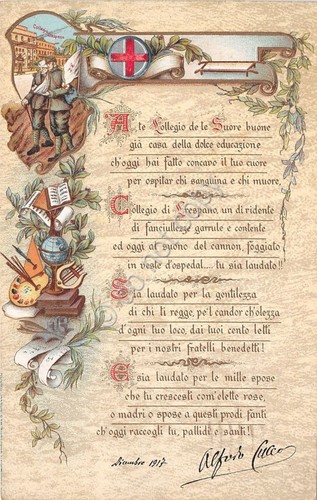 A te Collegio de le Suore buone
già casa della dolce educazione
ch'oggi hai fatto concavo il tuo cuore
per ospitar chi sanguina e chi muore,
Collegio di Crespano, un dì ridente
di fanciullezze garrule e contente
ed oggi al suono del cannon, foggiato
in veste d'ospedal.... tu sia laudato!!
Sia laudato per la gentilezza
di chi ti regge, pe'l candor ch'olezza
d'ogni tuo loco, dai tuoi cento letti
per i nostri fratelli benedetti!
E sia laudato per le mille spose
che tu crescesti com'elette rose,
o madri o spose a questi prodi fanti
ch'oggi raccogli tu, pallidi e santi!
dicembre 1917
Alfredo